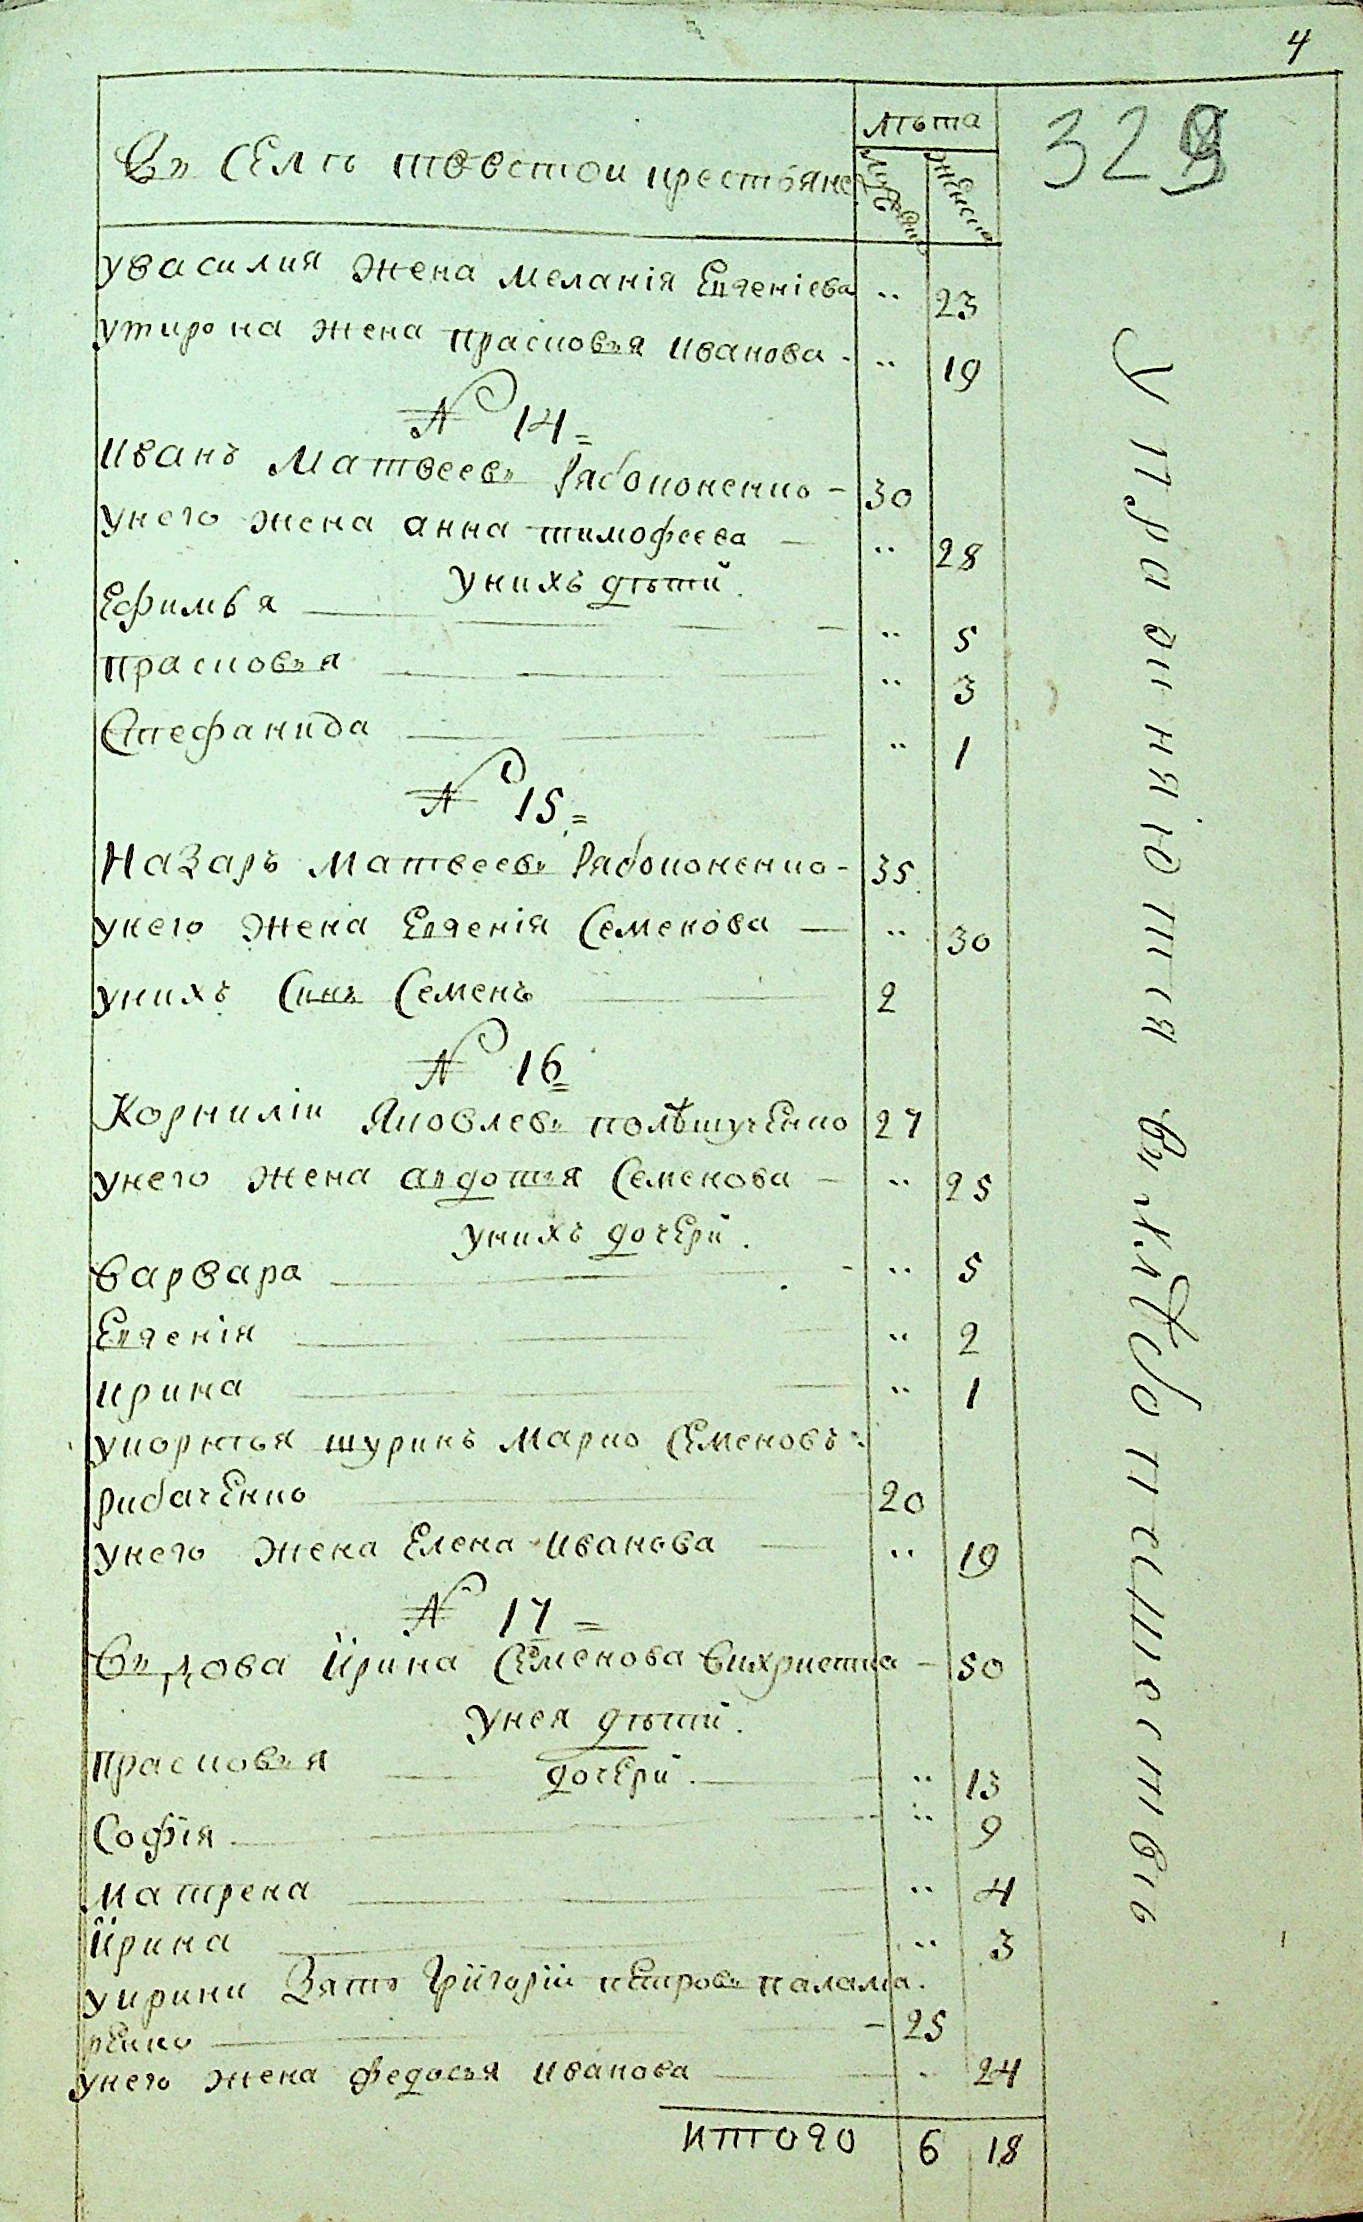 4
лѣта
Въ Селѣ Товстой крестьяне
Мужеска
Женска
329
у Василия жена Меланія Евгеніева " 23
у тирона жена прасковья иванова - " 19
№ 14 =
иванъ Матвеевъ Рябоконенко - 30
у него жена анна тимофеева — " 28
у нихъ дѣти.
Ефимья — " 5
прасковья — " 3
Стефанида — " 1
№ 15 =
Назаръ Матвеевъ Рябоконенко - 35
у него жена Евгенія Семенова — " 30
у нихъ Синъ Семенъ — 2
№ 16 =
Корнилій Яковлевъ полѣщученко 27
у него жена авдотья Семенова — " 25
у нихъ дочери.
варвара — " 5
Евгенія — " 2
ирина — " 1
у корнѣя шуринъ Марко Семеновъ
рибаченко — 20
у него жена Елена иванова — " 19
№ 17 =
вдова Ирина Семенова вихристка - 50
у нея дѣти.
дочери.
прасковья — " 13
Софія — " 9
матрена — " 4
Ирина — " 3
у ирини Зять Григорій петровъ палама-
ренко — 25
у него жена федосья иванова — " 24
итого 6 18